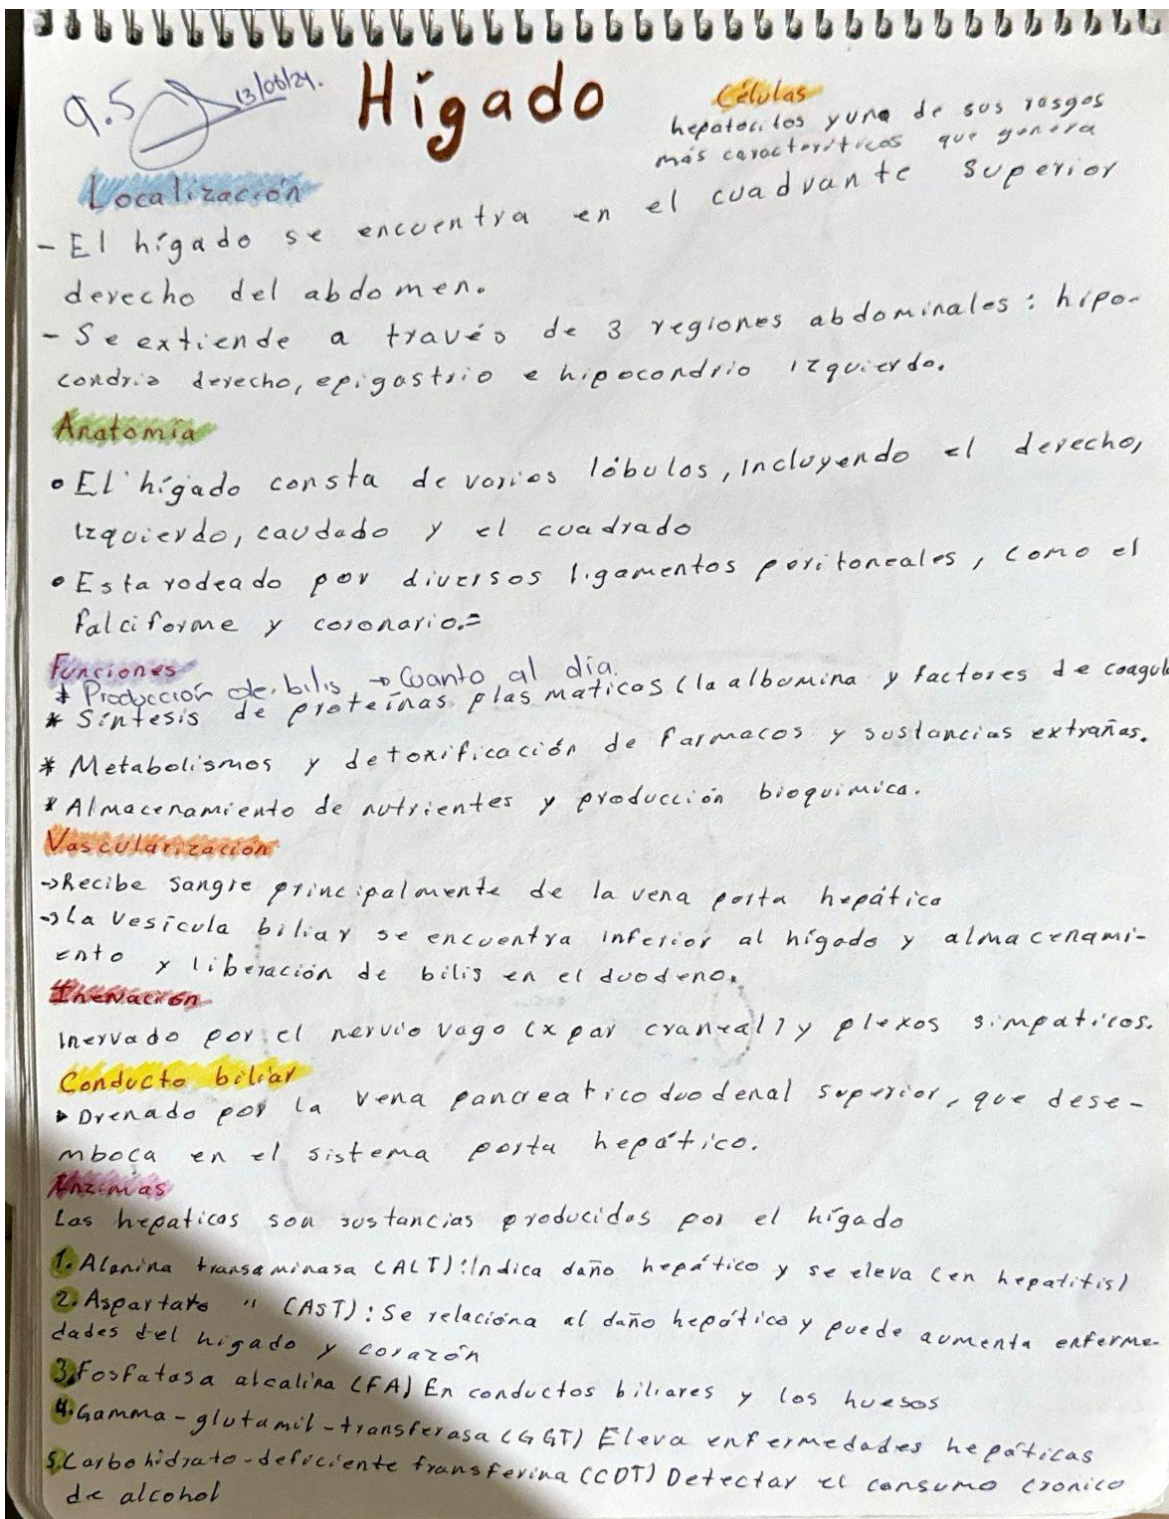 9.5
13/06/24.
Hígado
Células
hepatocitos y una de sus rasgos
más caracteríticos que genera
Localización
- El hígado se encuentra en el cuadrante superior
derecho del abdomen.
- Se extiende a través de 3 regiones abdominales: hipo-
condrio derecho, epigastrio e hipocondrio izquierdo.
Anatomía
• El hígado consta de varios lóbulos, incluyendo el derecho,
izquierdo, caudado y el cuadrado
• Esta rodeado por diversos ligamentos peritoneales, como el
falciforme y coronario.=
Funciones
* Producción de bilis → Cuanto al día.
* Síntesis de proteínas plasmaticas (la albumina y factores de coagula
* Metabolismos y detoxificación de farmacos y sustancias extrañas.
* Almacenamiento de nutrientes y producción bioquimica.
Vascularización
→ Recibe sangre principalmente de la vena porta hepática
→ La vesícula biliar se encuentra inferior al hígado y almacenami-
ento y liberación de bilis en el duodeno.
Inervación
Inervado por el nervio vago (x par craneal) y plexos simpaticos.
Conducto biliar
▸ Drenado por la vena pancreaticoduodenal superior, que dese-
mboca en el sistema porta hepático.
Enzimas
Las hepaticas son sustancias producidas por el hígado
1. Alanina transaminasa (ALT): Indica daño hepático y se eleva (en hepatitis)
2. Aspartato " (AST): Se relaciona al daño hepático y puede aumenta enferme-
dades del hígado y corazón
3. Fosfatasa alcalina (FA) En conductos biliares y los huesos
4. Gamma-glutamil-transferasa (GGT) Eleva enfermedades hepáticas
5. Carbohidrato-deficiente transferina (CDT) Detectar el consumo cronico
de alcohol